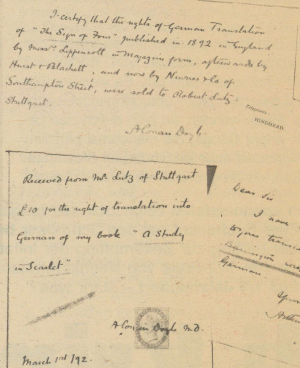 I certify that the rights of German Translation
of "The Sign of Four" published in 1892 in England
by Messrs Lippincott in Magazine form, afterwards by
Hurst & Blackett, and now by Newnes & Co of
Southampton Street, were sold to Robert Lutz
Stuttgart.
A Conan Doyle.
HINDHEAD.
Received from Mr Lutz of Stuttgart
£10 for the right of translation into
German of my book "A Study
in Scarlet"
A Conan Doyle M.D.
March 1st/92.
Dear Sir
I have
German